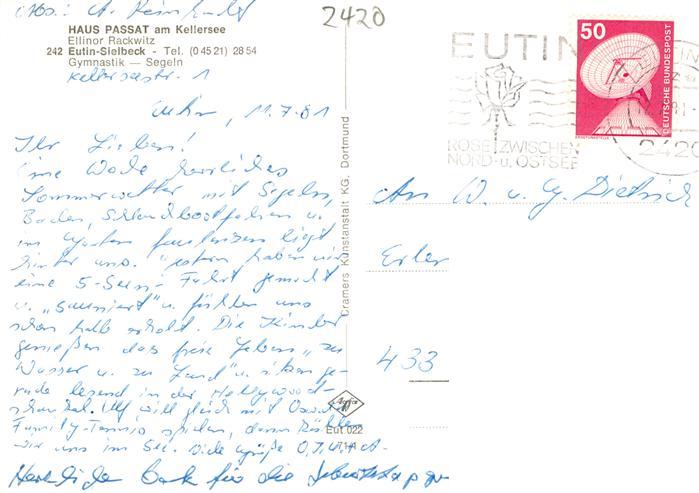 Abs.: A. Reinhardt
HAUS PASSAT am Kellersee
Ellinor Rackwitz
242 Eutin-Sielbeck - Tel. (0 45 21) 28 54
Gymnastik — Segeln
Kellerseestr. 1
Eutin, 11.7.81
Ihr Lieben!
Eine Woche herrliches
Sommerwetter mit Segeln,
Baden, Schlauchbootfahren u.
im Garten faulenzen liegt
hinter uns. Gestern haben wir
eine 5-Seen-Fahrt gemacht
u. „sauniert" u. fühlen uns
schon halb erholt. Die Kinder
genießen das freie Leben „zu
Wasser u. zu Land" u. sitzen ge-
rade lesend in der Hollywood-
schaukel. Ulf will gleich mit
Family-Tennis spielen, dann
wir uns im See. Viele Grüße
Herzlichen Dank für die
2420
EUTIN
ROSE ZWISCHEN
NORD- u. OSTSEE
2420
50
DEUTSCHE BUNDESPOST
An W. u. G. Dietrich
Erler
433
Cramers Kunstanstalt KG, Dortmund
Agfa
Eut 022